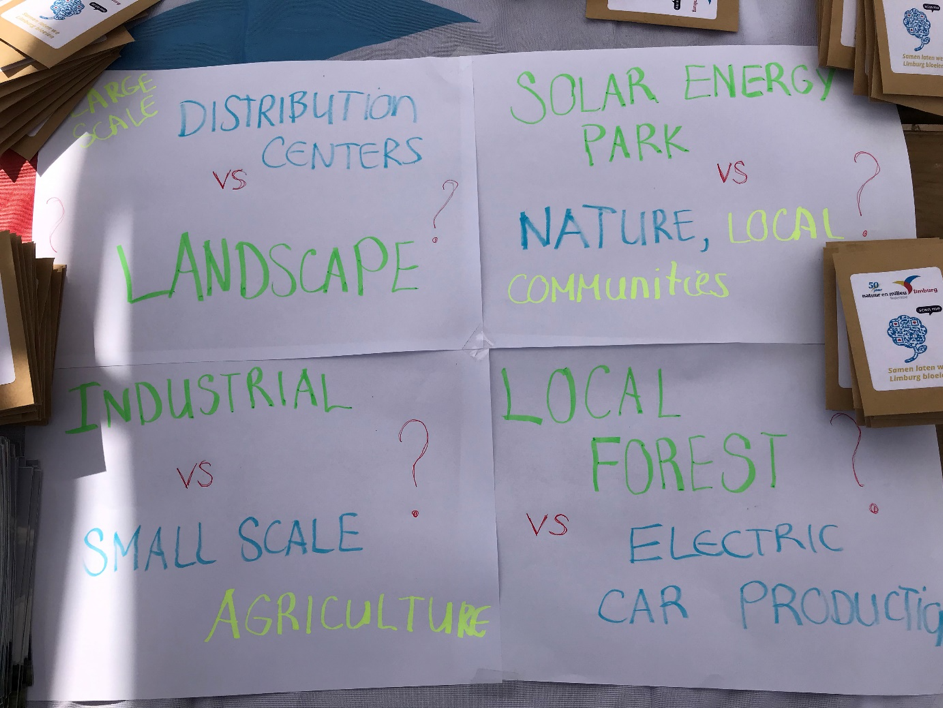 LARGE
SCALE
DISTRIBUTION
CENTERS
VS
?
?
LANDSCAPE
SOLAR ENERGY
PARK
VS
?
NATURE, LOCAL
COMMUNITIES
INDUSTRIAL
VS
?
SMALL SCALE
AGRICULTURE
LOCAL
FOREST
?
VS
ELECTRIC
CAR PRODUCTIO
50
jaar
natuur en milieu limburg
Samen laten w
Limburg bloei
Samen laten we
Limburg bloeie